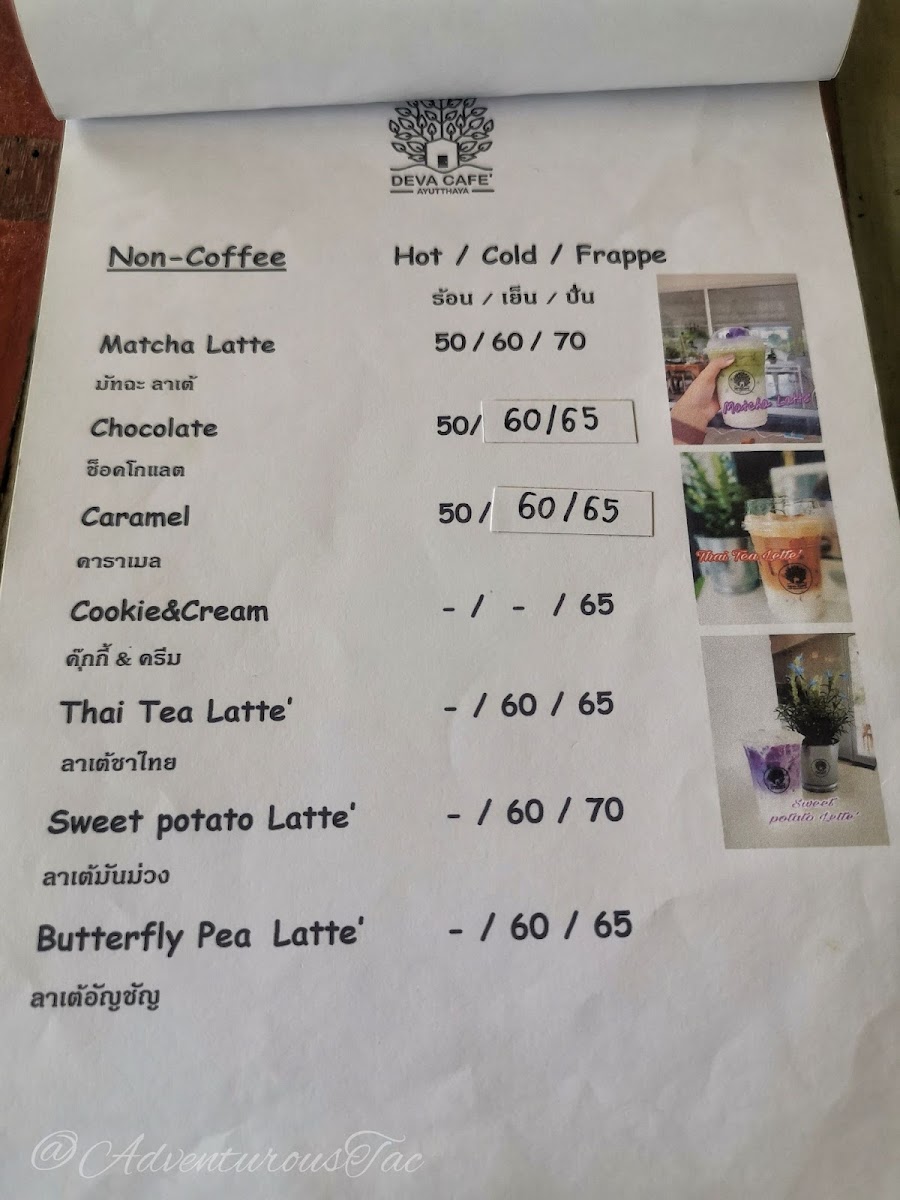 DEVA CAFE'
AYUTTHAYA
Non-Coffee Hot / Cold / Frappe
ร้อน / เย็น / ปั่น
Matcha Latte 50 / 60 / 70
มัทฉะ ลาเต้
Chocolate 50/ 60/65
ช็อคโกแลต
Caramel 50 / 60/65
คาราเมล
Cookie&Cream - / - / 65
คุ๊กกี้ & ครีม
Thai Tea Latte' - / 60 / 65
ลาเต้ชาไทย
Sweet potato Latte' - / 60 / 70
ลาเต้มันม่วง
Butterfly Pea Latte' - / 60 / 65
ลาเต้อัญชัญ
Matcha Latte'
Thai Tea Latte'
Sweet
potato Latte'
@AdventurousTac